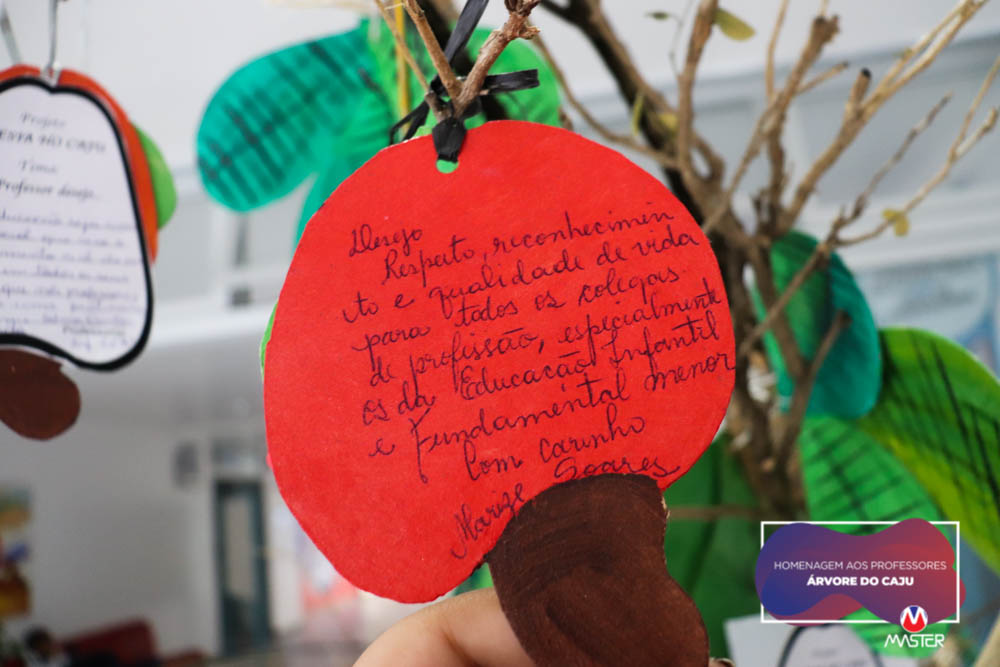 Desejo
Respeito, reconhecimen
to e qualidade de vida
para todos os colegas
de profissão, especialmente
os da Educacão Infantil
e Fundamental menor
Com carinho
Soares
Projeto
ESTA NO CAJU
Tema
Professor desejo...
HOMENAGEM AOS PROFESSORES
ÁRVORE DO CAJU
MASTER